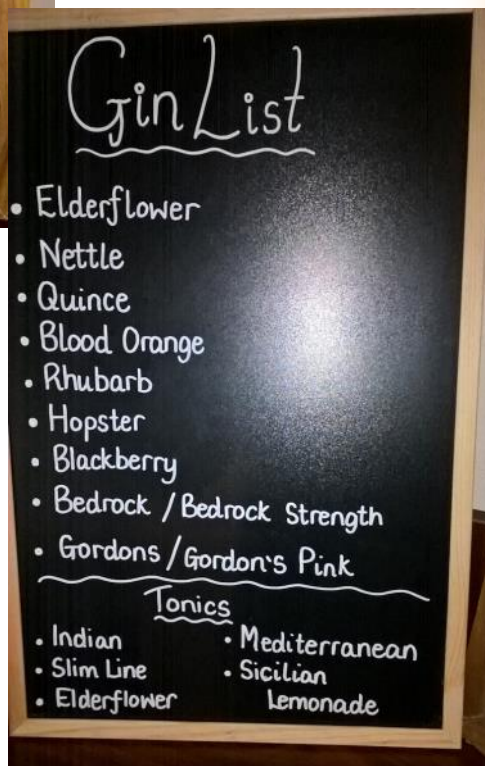 Gin List
• Elderflower
• Nettle
• Quince
• Blood Orange
• Rhubarb
• Hopster
• Blackberry
• Bedrock / Bedrock Strength
• Gordons / Gordon's Pink
Tonics
• Indian
• Slim Line
• Elderflower
• Mediterranean
• Sicilian
Lemonade